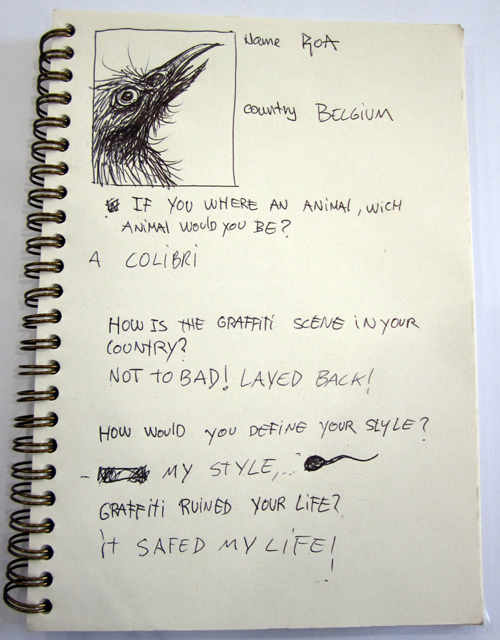 Name ROA
Country BELGIUM
IF YOU WHERE AN ANIMAL, WICH
ANIMAL WOULD YOU BE?
A COLIBRI
HOW IS THE GRAFFITI SCENE IN YOUR
COUNTRY?
NOT TO BAD! LAYED BACK!
HOW WOULD YOU DEFINE YOUR STYLE?
- MY STYLE,..
GRAFFITI RUINED YOUR LIFE?
iT SAFED MY LIFE!